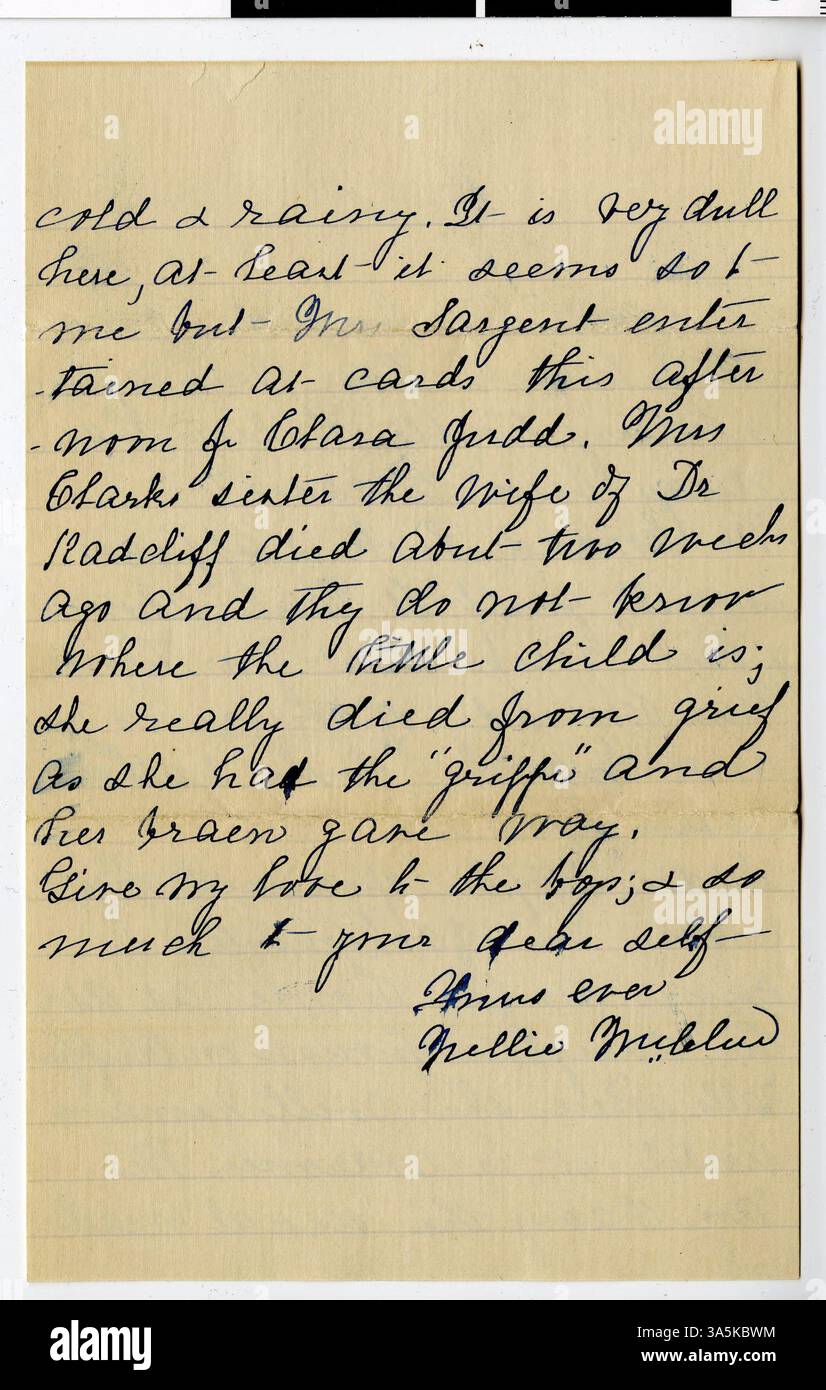 cold & rainy. It is very dull
here, at least it seems so to
me but Mrs Sargent enter
-tained at cards this after
-noon for Clara Judd. Mrs
Clarks sister the wife of Dr
Radcliff died about two weeks
ago and they do not know
where the little child is;
she really died from grief
as she had the "grippe" and
her braen gave way.
Give my love to the boys; & so
much to your dear self-
Yours ever
Nellie
a alamy
alamy
www.alamy.com
Image ID: 3A5KBWM